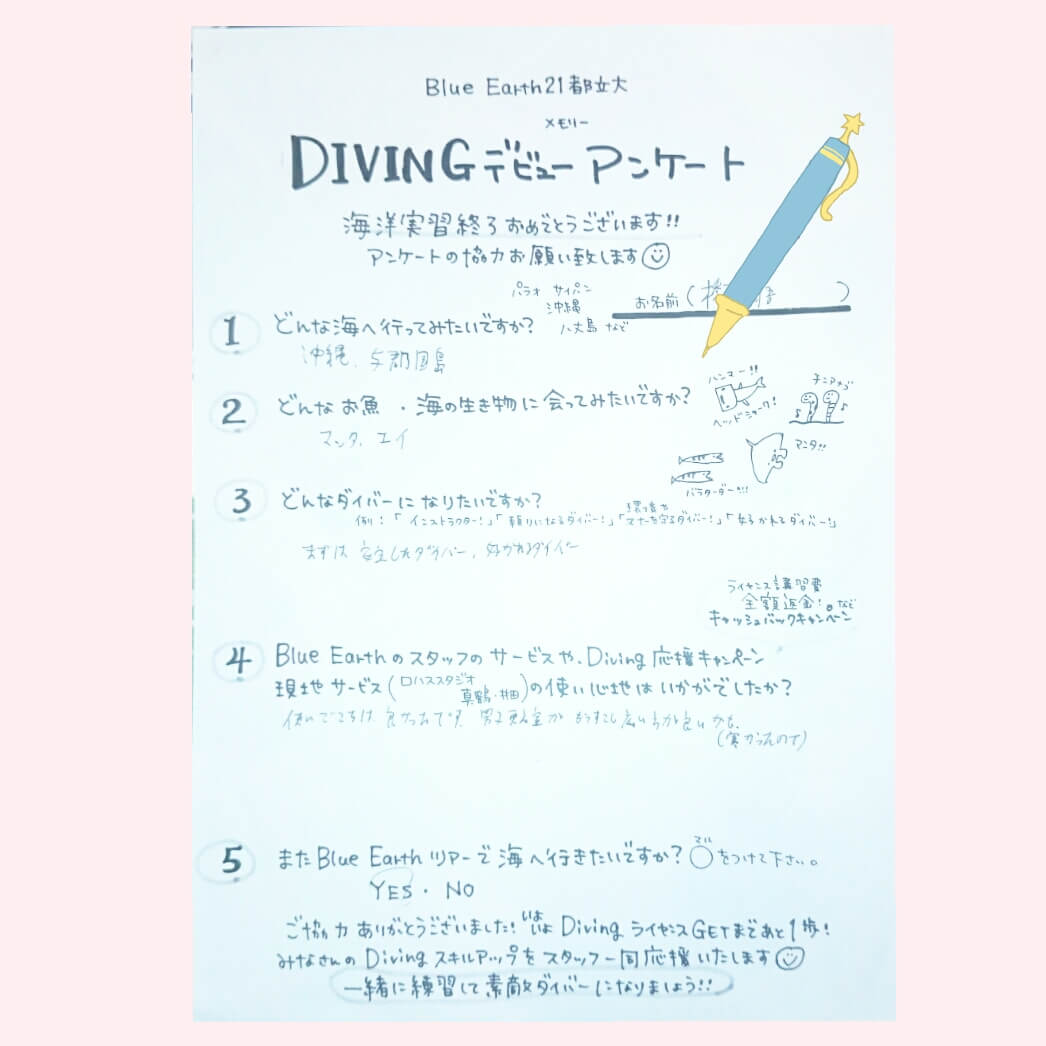 Blue Earth21都立大
メモリー
DIVINGデビューアンケート
海洋実習終了おめでとうございます!!
アンケートの協力お願い致します
お名前( )
1 どんな海へ行ってみたいですか?
パラオ サイパン
沖縄
八丈島 など
沖縄、与那国島
2 どんなお魚・海の生き物に会ってみたいですか?
マンタ、エイ
ハンマー!!
ヘッドシャーク!
チンアナゴ
マンタ!!
バラクーダー!!!
3 どんなダイバーになりたいですか?
例:「インストラクター!」「頼りになるダイバー!」「環境やマナーを守るダイバー!」「好かれるダイバー!」
まずは安定したダイバー、好かれるダイバー
ライセンス講習費
全額返金!など
キャッシュバックキャンペーン
4 Blue Earthのスタッフのサービスや、Diving応援キャンペーン
現地サービス(ロハススタジオ 真鶴・井田)の使い心地はいかがでしたか?
使いごこちは良かったです 男子更衣室がもうすこし広いほうが良いかも
(寒かったので)
5 またBlue Earthツアーで海へ行きたいですか?○をつけて下さい。
YES・NO
ご協力ありがとうございました!いよいよDivingライセンスGETまであと1歩!
みなさんのDivingスキルアップをスタッフ一同応援いたします
一緒に練習して素敵ダイバーになりましょう!!